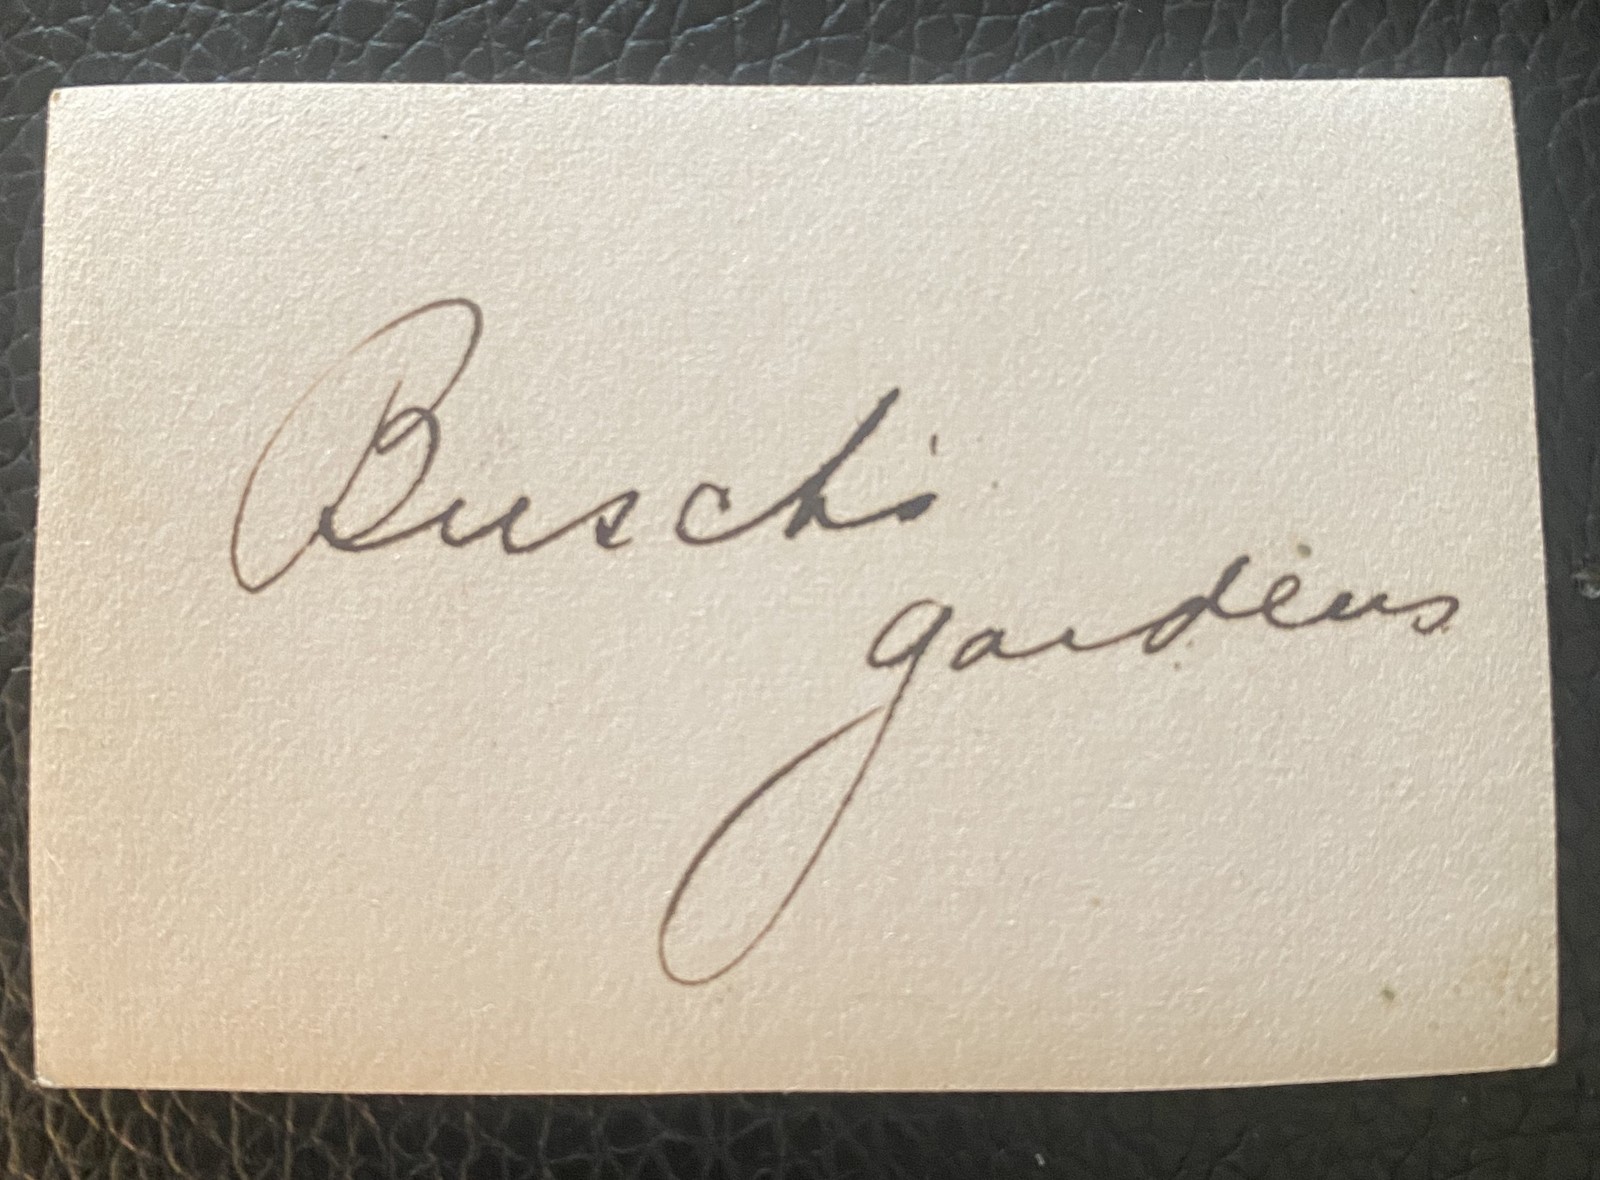 Busch's
gardens